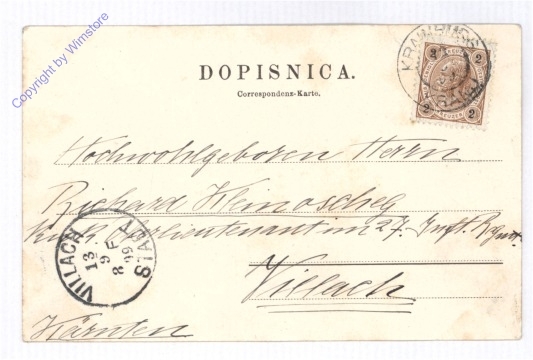 Copyright by Wimstore
DOPISNICA.
Correspondenz-Karte.
KRAINBURG
2 2
2 KREUZER 2
Hochwohlgeboren Herrn
Richard Heinoscheg
K.u.K. Oberlieutenant im 27. Inft. Regmt.
Villach
Kärnten
VILLACH STADT
13 8
9 F
99